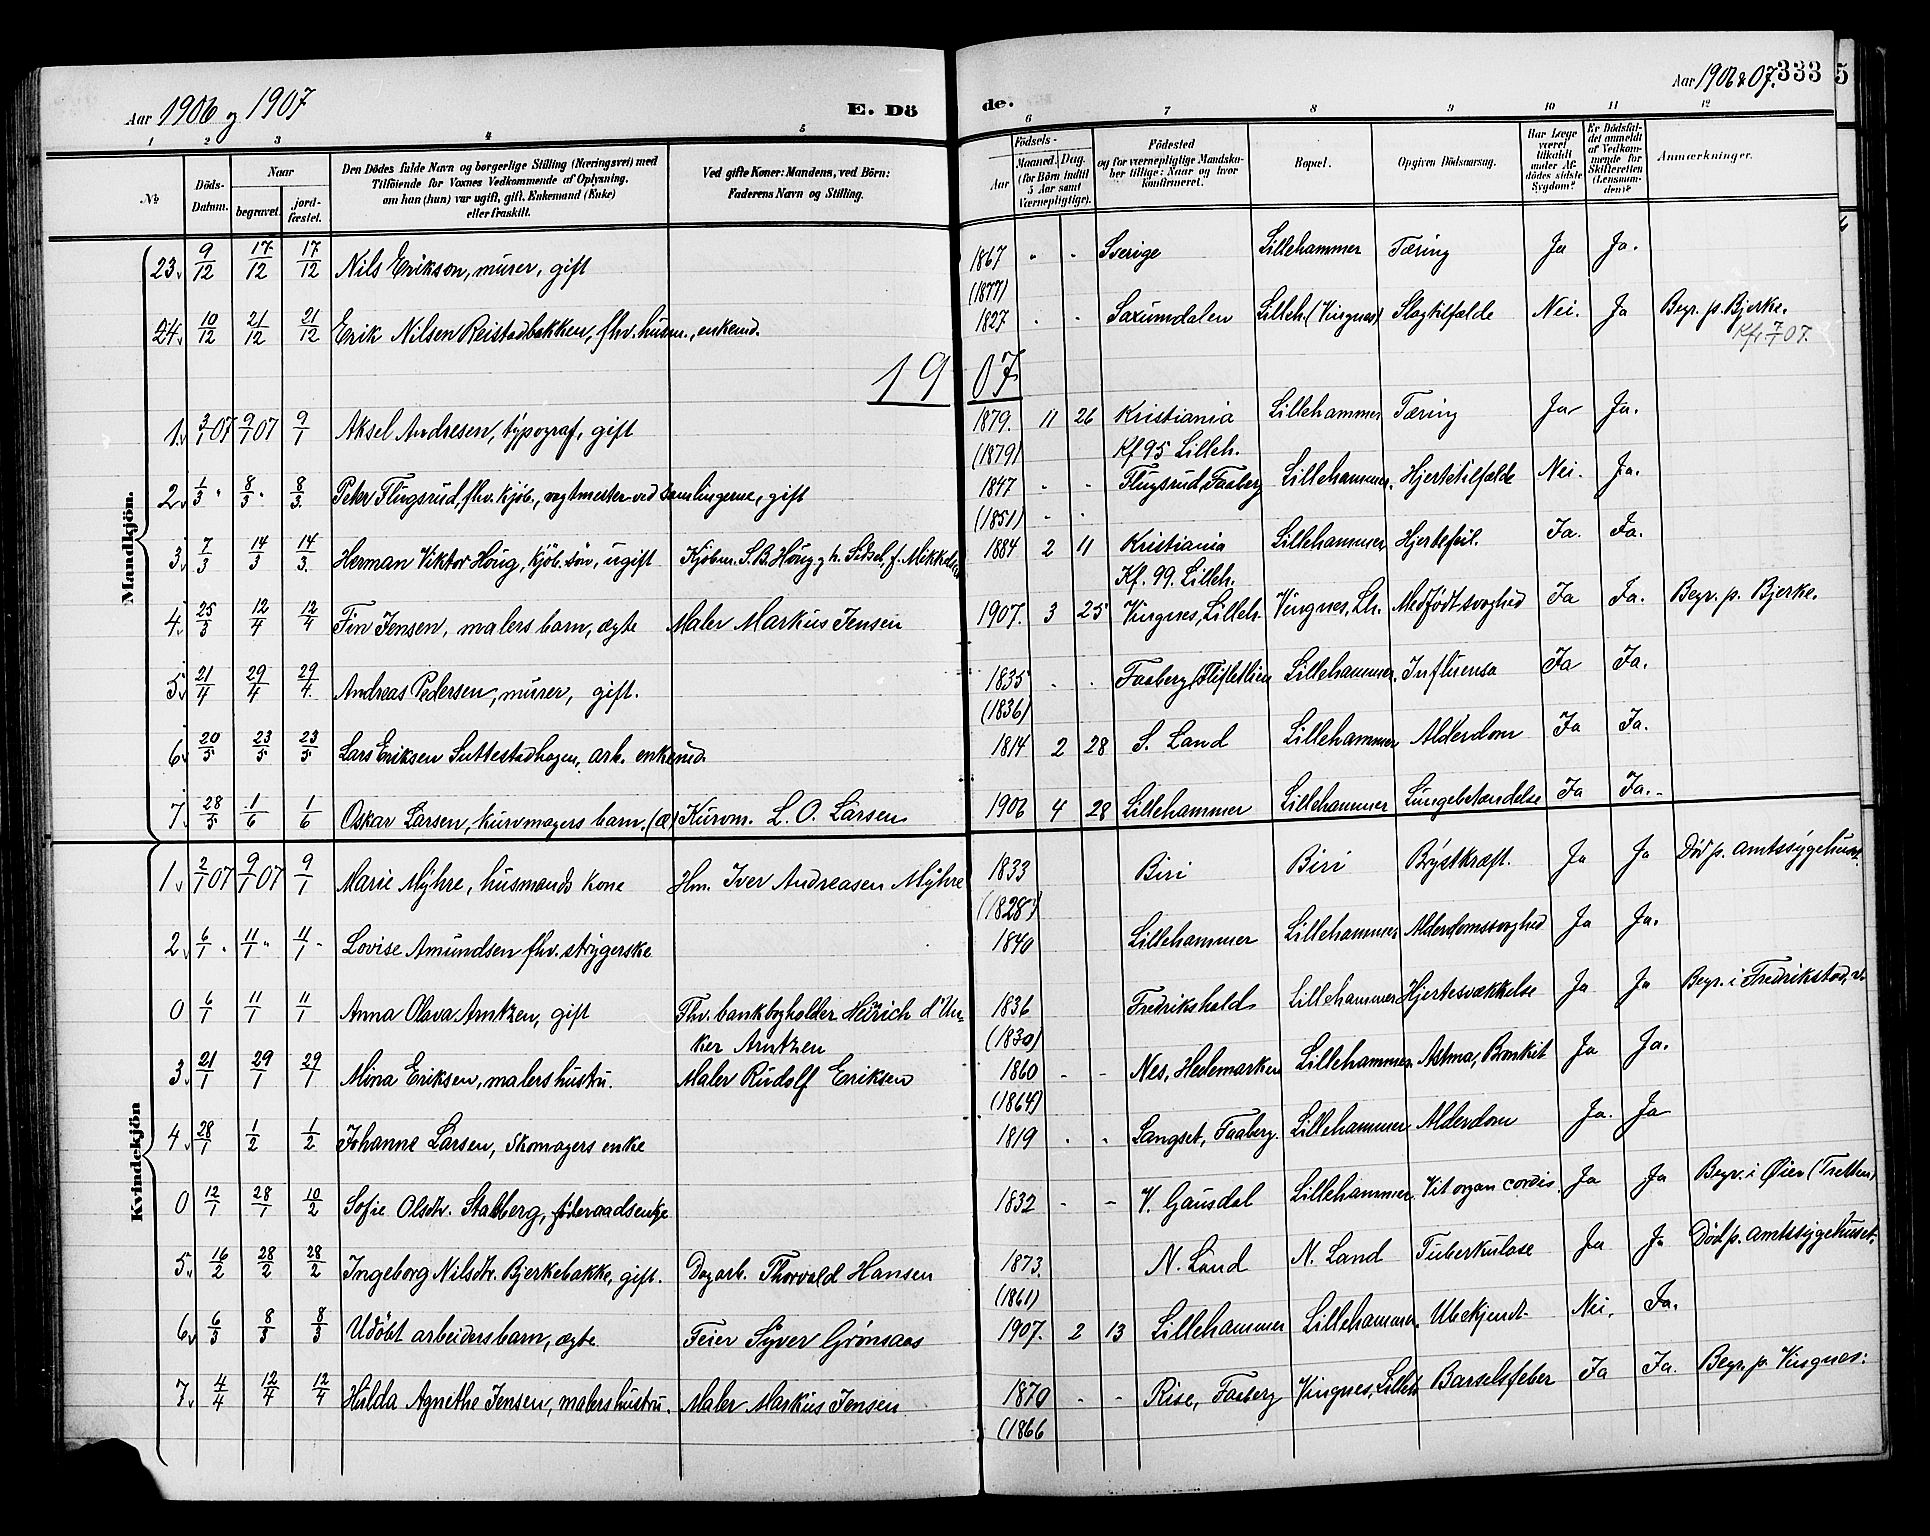 Aar 1906 g 1907
E. Dö
de.
Aar 1906 & 07. 333
5
1 2 3 4 5 6 7 8 9 10 11 12
No
Döds-Datum.
Naar
begravet.
jord-fæstet.
Den Dödes fulde Navn og borgerlige Stilling (Næringsvei) med
Tilföiende for Voxnes Vedkommende af Oplysning.
om han (hun) var ugift, gift, Enkemand (Enke)
eller fraskilt.
Ved gifte Koner: Mandens, ved Börn:
Faderens Navn og Stilling.
Födsels-
Aar
Maaned. Dag.
(for Börn indtil
5 Aar samt
Værnepligtige).
Födested
og for værnepligtige Mandska-
ber tillige: Naar og hvor
konfirmeret.
Bopæl.
Opgiven Dödsaarsag.
Har Læge
været
tilkaldt
under Af-
dödes sidste
Sygdom?
Er Dödsfal-
det anmeldt
af Vedkom-
mende for
Skifteretten
(Lensman-
den)?
Anmærkninger.
Mandkjön.
23. 9/12 17/12 17/12 Nils Erikson, murer, gift 1867 (1877) " " Sverige Lillehammer Tæring Ja Ja.
24. 10/12 21/12 21/12 Erik Nilsen Reistadbakken, fhv. husm., enkemd. 1827 " " Saxumdalen Lilleh. (Vingnes) Slagtilfælde Nei. Ja Begr. p. Bjerke.
Kfr 7/1 07.
1907
1. 3/1 07 9/1 07 9/1 Aksel Andresen, typograf, gift 1879. (1879) 11 26 Kristiania Lillehammer Tæring Ja Ja.
Kf 95 Lilleh.
2 1/3 " 8/3 " 8/3. Peter Flugsrud, fhv. kjöb., vagtmester ved Samlingerne, gift 1847 (1851) - - Flugsrud, Faaberg Lillehammer. Hjertetilfælde Nei. Ja.
3. 7/3 14/3 14/3. Herman Viktor Houg, kjöb. sön, ugift Kjöbm. S. B. Houg g h. Sidsel, f. Mikkelsen 1884 2 11 Kristiania Lillehammer Hjertefeil. Ja. Ja.
Kf. 99. Lilleh.
4. 25/3 12/4 12/4 Fin Jensen, malers barn, ægte Maler Markus Jensen 1907. 3 25 Vingnes, Lilleh. Vingnes, Lh. Medfödt svaghed Ja Ja. Begr. p. Bjerke.
5. 21/4 29/4 29/4. Andreas Pedersen, murer, gift. 1835 (1836) . . Faaberg Lillehammer. Influensa Ja Ja.
6. 20/5 23/5 23/5 Lars Eriksen Suttestadhagen, arb. enkemd. 1814 2 28 S. Land Lillehammer Alderdom Ja Ja.
7. 28/5 1/6 1/6 Oskar Larsen, kurvmagers barn. (æ) Kurvm. L. O. Larsen 1906 4 28 Lillehammer Lillehammer Lungebetændelse Ja Ja.
Kvindekjön
1 2/1 07 9/1 07 9/1 Marie Myhre, husmands kone Hm. Iver Andreasen Myhre 1833 (1828?) Biri Biri Brystkræft. Ja Ja Död p. amtssygehuset.
2 6/1 " 11/1 " 11/1 " Lovise Amundsen fhv. strygerske 1840 Lillehammer Lillehammer Alderdomssvaghed Ja Ja.
0 6/1 11/1 11/1 Anna Olava Arntzen, gift Fhv. bankbogholder Heirich d'Un-
ker Arntzen 1836 (1830) Fredrikshald Lillehammer Hjertesvækkelse Ja Ja Begr. i Fredrikstad
3. 21/1 29/1 29/1 Mina Eriksen, malers hustru. Maler Rudolf Eriksen 1860 (1864) - - Nes, Hedemarken Lillehammer. Astma, Bronkit Ja Ja.
4 28/1 1/2 1/2 Johanne Larsen, Skomagers enke 1819 . . Sangset, Faaberg. Lillehammer Alderdom Ja. Ja
0 12/1 28/1 10/2 Sofie Olsdtr. Stalsberg, föderaadsenke 1832 - - V. Gausdal Lillehammer Vit organ cordis. Ja Ja Begr. i Øier (Tretten)
5. 16/2 28/2 28/2 Ingeborg Nilsdtr. Bjerkebakke, gift. Dagarb. Thorvald Hansen 1873. (1861) N. Land N. Land Tuberkulose Ja Ja Död p. amtssygehuset.
6. 6/3 8/3 8/3 Udöbt arbeidersbarn, ægte Feier Syver Grönsaas 1907. 2 13 Lillehammer Lillehammer. Ubekjendt Nei. Ja.
7. 4/4 12/4 12/4 Hilda Agnethe Jensen, malers hustru. Maler Markus Jensen 1870 (1866 - - Rise, Faaberg Vingnes, Lilleh Barselsfeber Ja Ja. Begr. p. Vingnes: